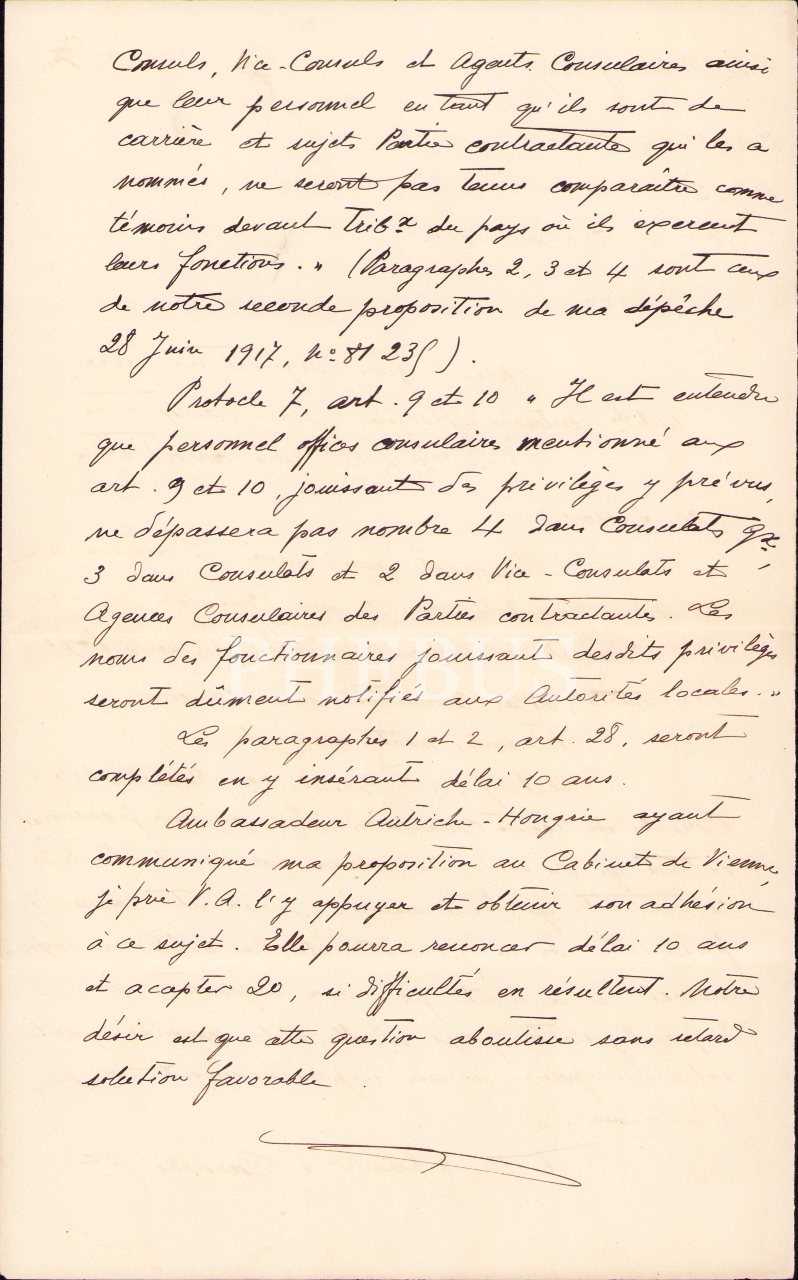 Consuls, Vice-Consuls et Agents Consulaires ainsi
que leur personnel en tant qu'ils sont de
carrière et sujets Partie contractante qui les a
nommés, ne seront pas tenus comparaître comme
témoins devant Trib.x du pays où ils exercent
leurs fonctions. " (Paragraphes 2, 3 et 4 sont ceux
de notre seconde proposition de ma dépêche
28 Juin 1917, No 81235).
Protocle 7, art. 9 et 10 " Il est entendu
que personnel offices consulaires mentionné aux
art. 9 et 10, jouissant des privilèges y prévus,
ne dépassera pas nombre 4 dans Consulats gx,
3 dans Consulats et 2 dans Vice-Consulats et
Agences Consulaires des Parties contractantes. Les
noms des fonctionnaires jouissant desdits privilèges
seront dûment notifiés aux Autorités locales. "
Les paragraphes 1 et 2, art. 28, seront
complétés en y insérant délai 10 ans.
Ambassadeur Autriche-Hongrie ayant
communiqué ma proposition au Cabinet de Vienne,
je prie V.A. l'y appuyer et obtenir son adhésion
à ce sujet. Elle pourra renoncer délai 10 ans
et accepter 20, si difficultés en résultent. Notre
désir est que cette question aboutisse sans retard
solution favorable.